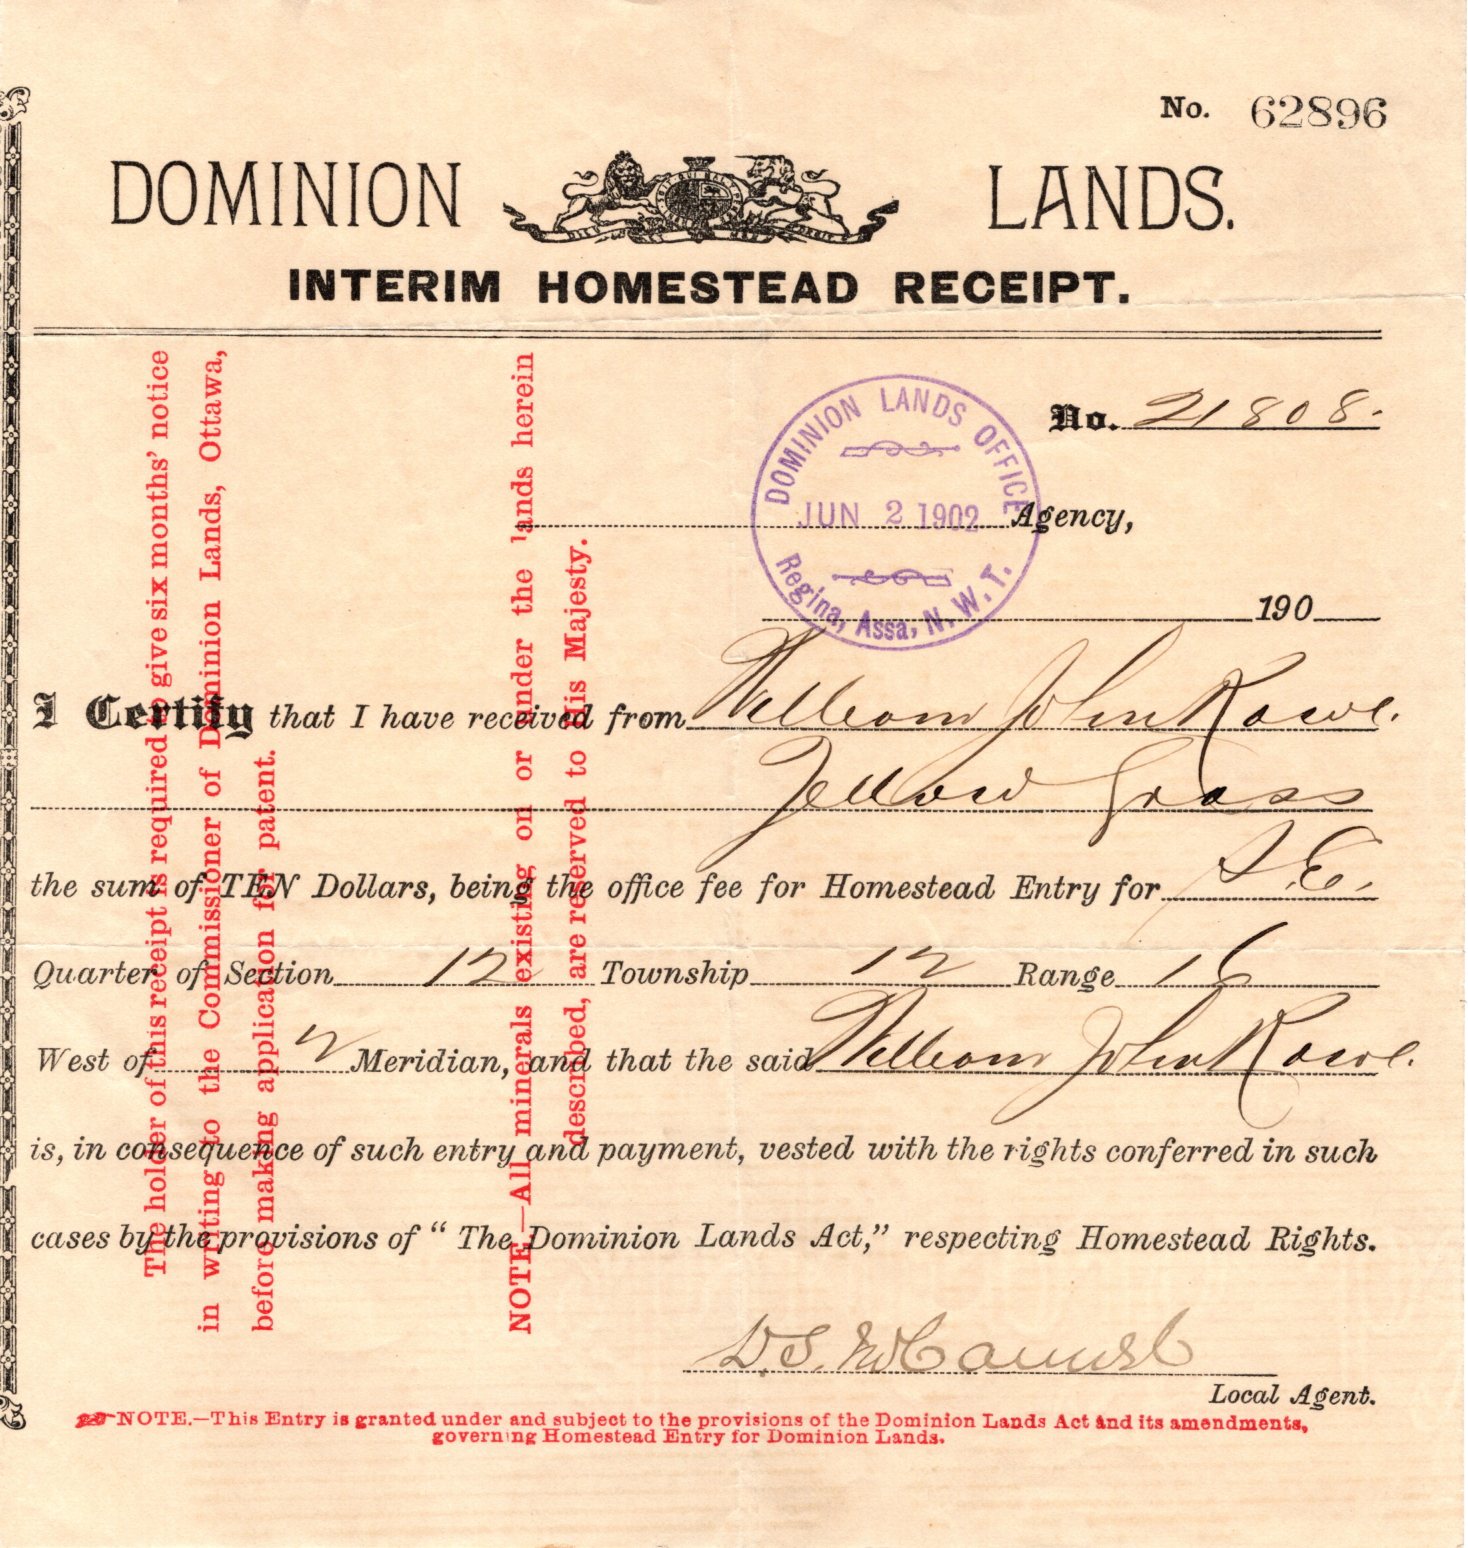 No. 62896
DOMINION LANDS.
INTERIM HOMESTEAD RECEIPT.
No. 21808.
DOMINION LANDS OFFICE
JUN 2 1902
Regina, Assa, N.W.T.
Agency,
190
I Certify that I have received from William John Rowe.
Yellow Grass
the sum of TEN Dollars, being the office fee for Homestead Entry for S.E.
Quarter of Section 12 Township 12 Range 16
West of 2 Meridian, and that the said William John Rowe.
is, in consequence of such entry and payment, vested with the rights conferred in such
cases by the provisions of “ The Dominion Lands Act,” respecting Homestead Rights.
D.S.
Local Agent.
NOTE.—This Entry is granted under and subject to the provisions of the Dominion Lands Act and its amendments,
governing Homestead Entry for Dominion Lands.
The holder of this receipt is required to give six months' notice
in writing to the Commissioner of Dominion Lands, Ottawa,
before making application for patent.
NOTE—All minerals existing on or under the lands herein
described, are reserved to His Majesty.